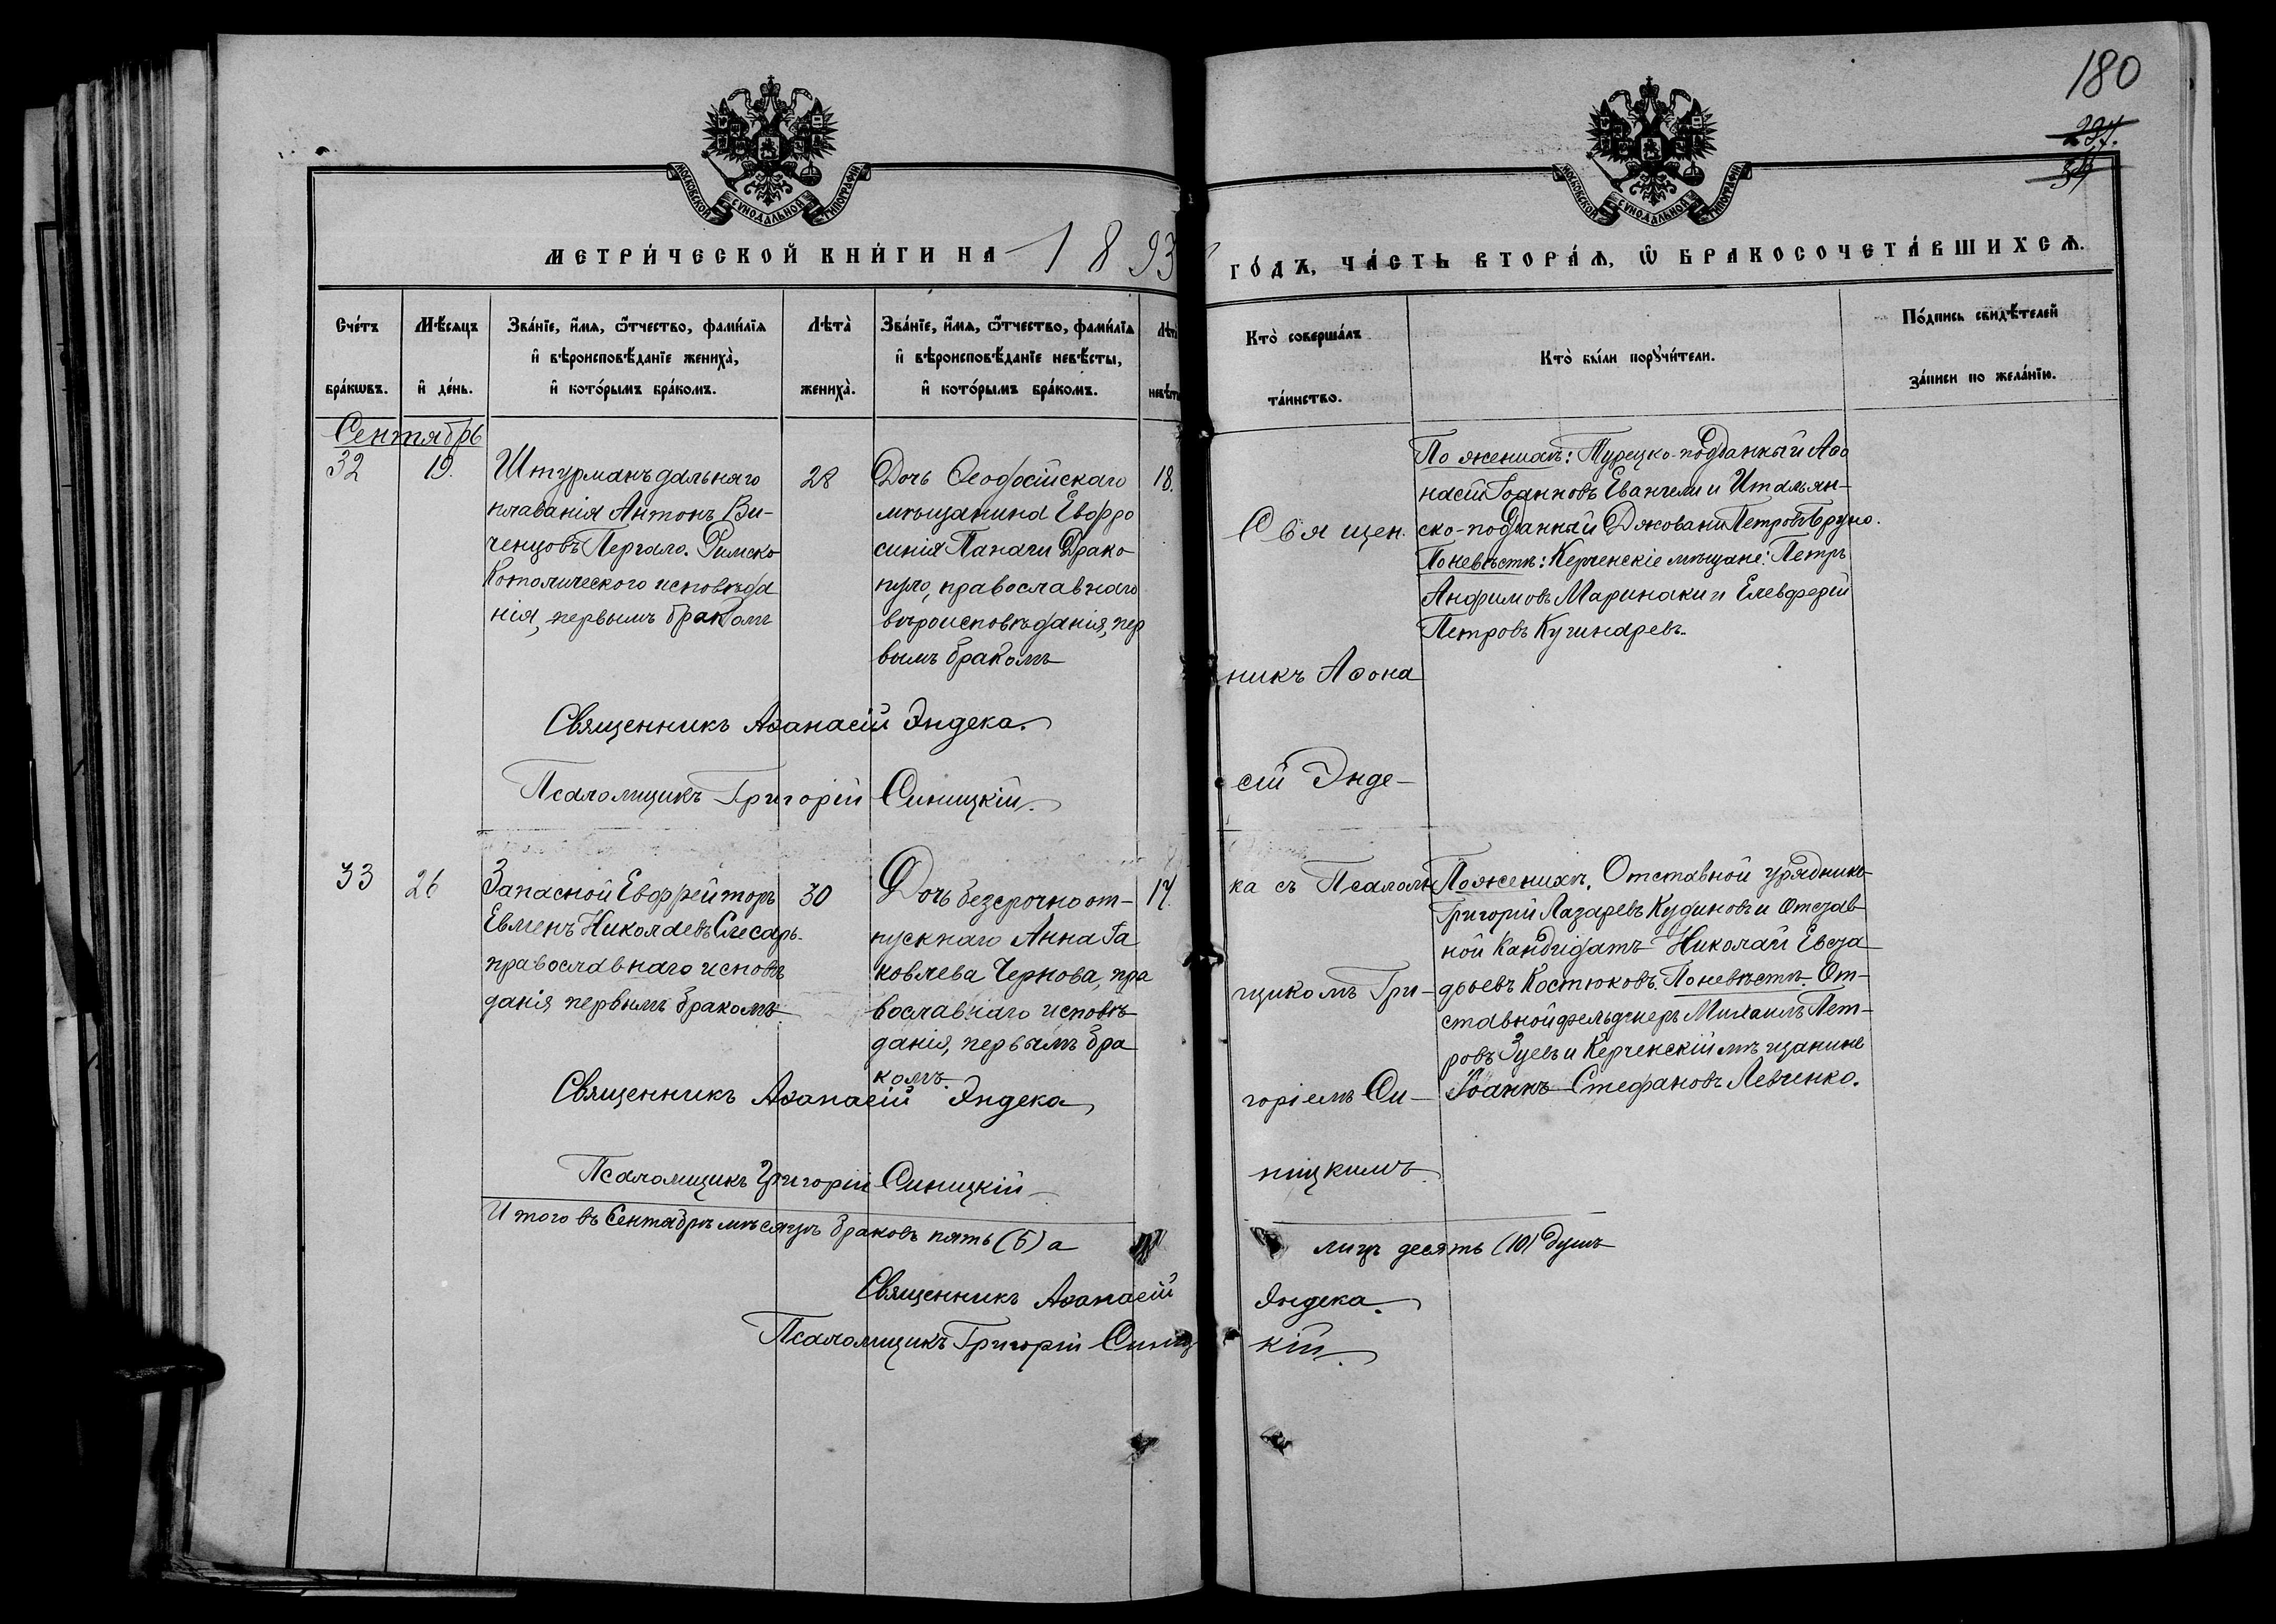 180
МОСКОВСКОЙ СѴНОДАЛЬНОЙ ТИПОГРАФІИ
МОСКОВСКОЙ СѴНОДАЛЬНОЙ ТИПОГРАФІИ
МЕТРИ́ЧЕСКОЙ КНИ́ГИ НА 1893 ГО́ДЪ, ЧА́СТЬ ВТОРА́Ѧ, Ѽ БРАКОСОЧЕТА́ВШИХСѦ.
Сче́тъ бра́кѡвъ.
Мѣ́сяцъ и҆ де́нь.
Зва́нїе, и҆́мѧ, ѻ҆́тчество, фами́лїѧ
и҆ вѣроисповѣ́данїе жениха̀,
и҆ кото́рымъ бра́комъ.
Лѣта̀ жениха̀.
Зва́нїе, и҆́мѧ, ѻ҆́тчество, фами́лїѧ
и҆ вѣроисповѣ́данїе невѣ́сты,
и҆ кото́рымъ бра́комъ.
Лѣта̀ невѣ́сты
Кто̀ соверша́лъ
та́инство.
Кто̀ бы́ли порꙋчи́тели.
По́дпись свидѣ́телей
за́писи по жела́нїю.
Сентябрь
32
19.
Штурманъ дальняго
плаванія Антонъ Ви-
ченцовъ Пергало. Римско
Католическаго исповѣда
нія, первымъ бракомъ
28
Дочь Ѳеодосійскаго
мѣщанина Евфро
синія Панаги Драко
пуло, православнаго
вѣроисповѣданія, пер
вымъ бракомъ
18.
Священ.
никъ Аѳана
сій Энде-
ка съ Псалом
щикомъ Гри-
горіемъ Си-
ницкимъ.
По женихѣ: Турецко-подданный Аѳа
насій Іоанновъ Евангели и Итальян-
ско-подданный Джовани Петровъ Бруно.
По невѣстѣ: Керченскіе мѣщане: Петръ
Анфимовъ Маринаки и Елевферій
Петровъ Кучинаревъ.
Священникъ Аѳанасій Эндека.
Псаломщикъ Григорій Синицкій.
33
26
Запасной Евфрейторъ
Евменъ Николаевъ Слесарь
православнаго исповѣ
данія первымъ бракомъ
30
Дочь безсрочно от-
пускнаго Анна Іа
ковлева Чернова, пра
вославнаго исповѣ
данія, первымъ бра
комъ.
17.
По женихѣ. Отставной урядникъ
Григорій Лазаревъ Кудиновъ и Отстав
ной Кандидатъ Николай Евста
фьевъ Костюковъ. По невѣстѣ. От-
ставной фельдшеръ Михаилъ Пет-
ровъ Зуевъ и Керченскій мѣщанинъ
Іоаннъ Стефановъ Левченко.
Священникъ Аѳанасій Эндека
Псаломщикъ Григорій Синицкій
Итого въ Сентябрѣ мѣсяцѣ браковъ пять (5) а лицъ десять (10) душъ
Священникъ Аѳанасій Эндека.
Псаломщикъ Григорій Синицкій.